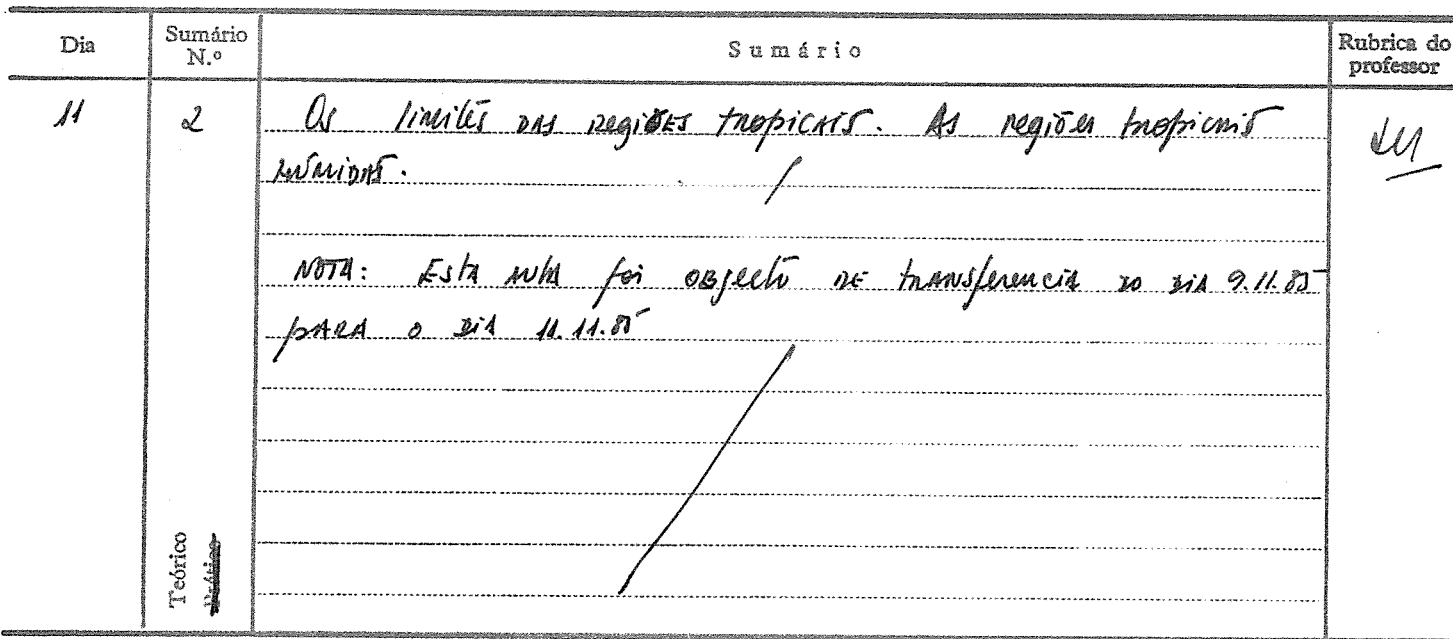 Dia
Sumário N.º
Sumário
Rubrica do professor
11
2
Os limites das regiões tropicais. As regiões tropicais
húmidas.
NOTA: Esta aula foi objecto de transferencia do dia 9.11.85
para o dia 11.11.85
Teórico